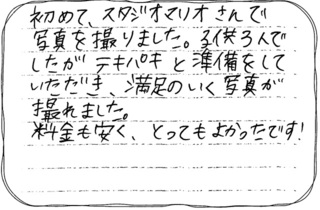 初めて、スタジオマリオさんで
写真を撮りました。子供3人で
したがテキパキと準備をして
いただき、満足のいく写真が
撮れました。
料金も安く、とってもよかったです!